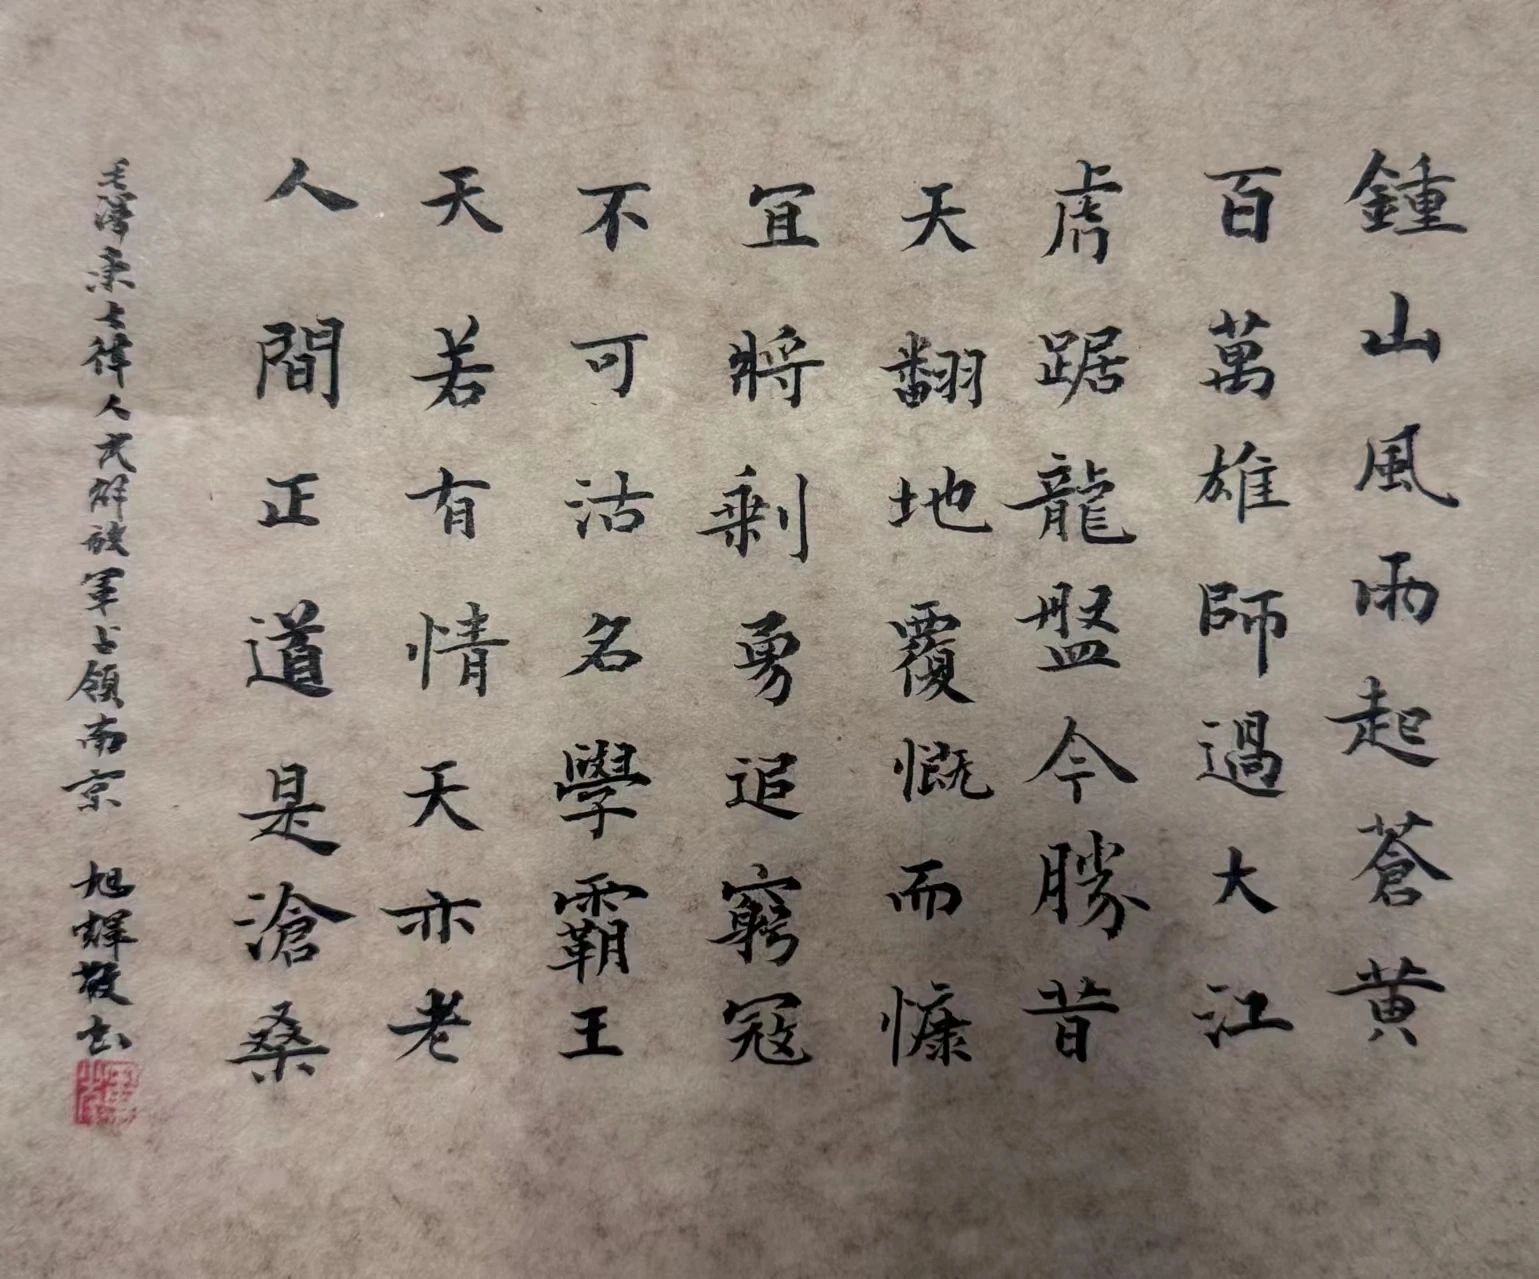 鍾山風雨起蒼黄
百萬雄師過大江
虎踞龍盤今勝昔
天翻地覆慨而慷
宜將剩勇追窮寇
不可沽名學霸王
天若有情天亦老
人間正道是滄桑
毛澤東七律人民解放軍占領南京 旭輝敬书